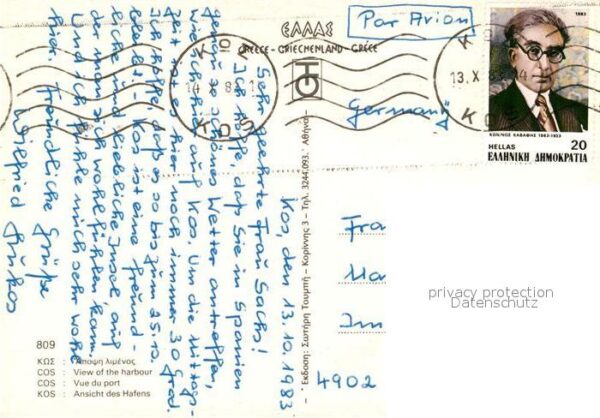 ΕΛΛΑΣ
GREECE - GRIECHENLAND - GRÈCE
Par Avion
1983
ΚΩΝ/ΝΟΣ ΚΑΒΑΦΗΣ 1863-1933
HELLAS 20
ΕΛΛΗΝΙΚΗ ΔΗΜΟΚΡΑΤΙΑ
13.X
ΚΩΣ
KOS
Germany
Kos, den 13.10.1983
Sehr geehrte Frau Sachs!
Ich hoffe, daß Sie in Spanien
genau so schönes Wetter antreffen,
wie ich hier auf Kos. Um die Mittags-
zeit sind hier noch immer 30 Grad.
Ich hoffe, daß es so bis zum 25.10.
bleibt. Kos ist eine freund-
liche und liebliche Insel, auf
der man sich wohlfühlen kann.
Und ich fühle mich sehr wohl
hier. Freundliche Grüße
Wilfried
Εκδοση: Σωτήρη Τουμπή - Κορίννης 3 - Τηλ. 3244.093. Αθήναι
Fra
Im
4902
privacy protection
Datenschutz
809
ΚΩΣ : Άποψη λιμένος
COS : View of the harbour
COS : Vue du port
KOS : Ansicht des Hafens